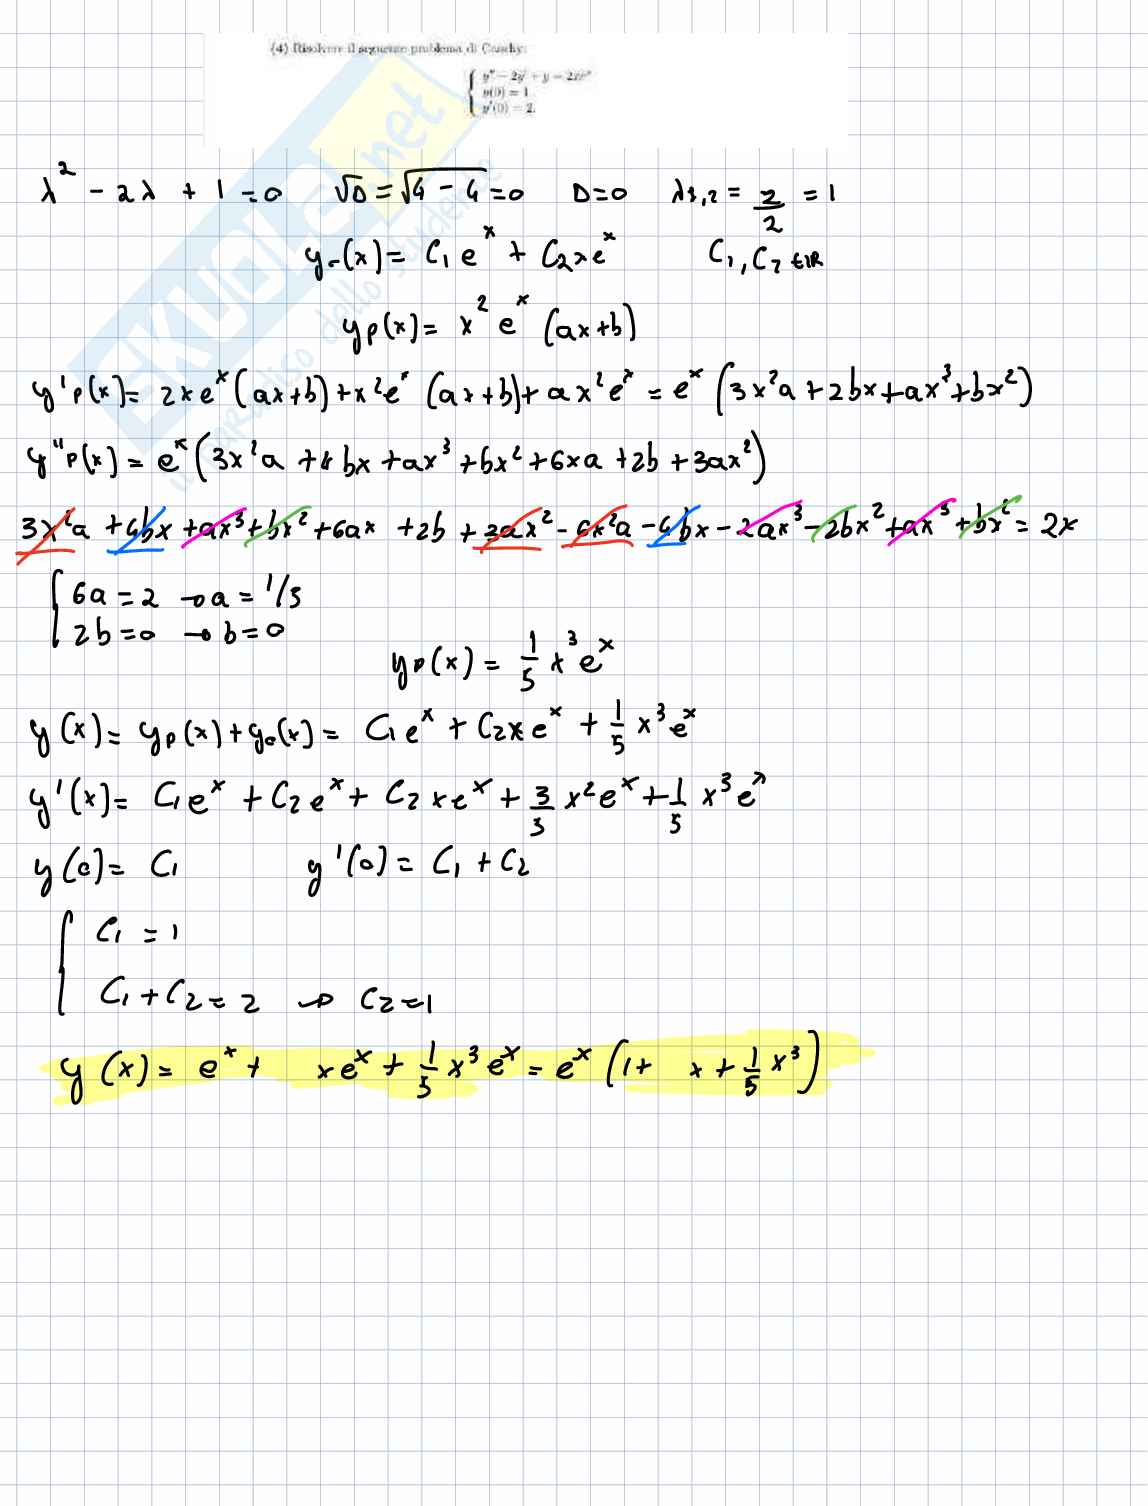 (4) Risolvere il seguente problema di Cauchy:
y'' − 2y' + y = 2xeˣ
y(0) = 1
y'(0) = 2.
SKUOLA.net
il paradiso dello studente
λ² − 2λ + 1 = 0 √D = √4 − 4 = 0 D = 0 λ1,2 = 2/2 = 1
y₀(x) = C₁eˣ + C₂xeˣ C₁, C₂ ∈ IR
yp(x) = x²eˣ(ax+b)
y'p(x) = 2xeˣ(ax+b) + x²eˣ(ax+b) + ax²eˣ = eˣ(3x²a + 2bx + ax³ + bx²)
y''p(x) = eˣ(3x²a + 4bx + ax³ + bx² + 6xa + 2b + 3ax²)
3x²a + 4bx + ax³ + bx² + 6ax + 2b + 3ax² − 6x²a − 4bx − 2ax³ − 2bx² + ax³ + bx² = 2x
6a = 2 → a = 1/3
2b = 0 → b = 0
yp(x) = 1/3 x³eˣ
y(x) = yp(x) + y₀(x) = C₁eˣ + C₂xeˣ + 1/3 x³eˣ
y'(x) = C₁eˣ + C₂eˣ + C₂xeˣ + 3/3 x²eˣ + 1/3 x³eˣ
y(0) = C₁ y'(0) = C₁ + C₂
C₁ = 1
C₁ + C₂ = 2 → C₂ = 1
y(x) = eˣ + xeˣ + 1/3 x³eˣ = eˣ(1 + x + 1/3 x³)